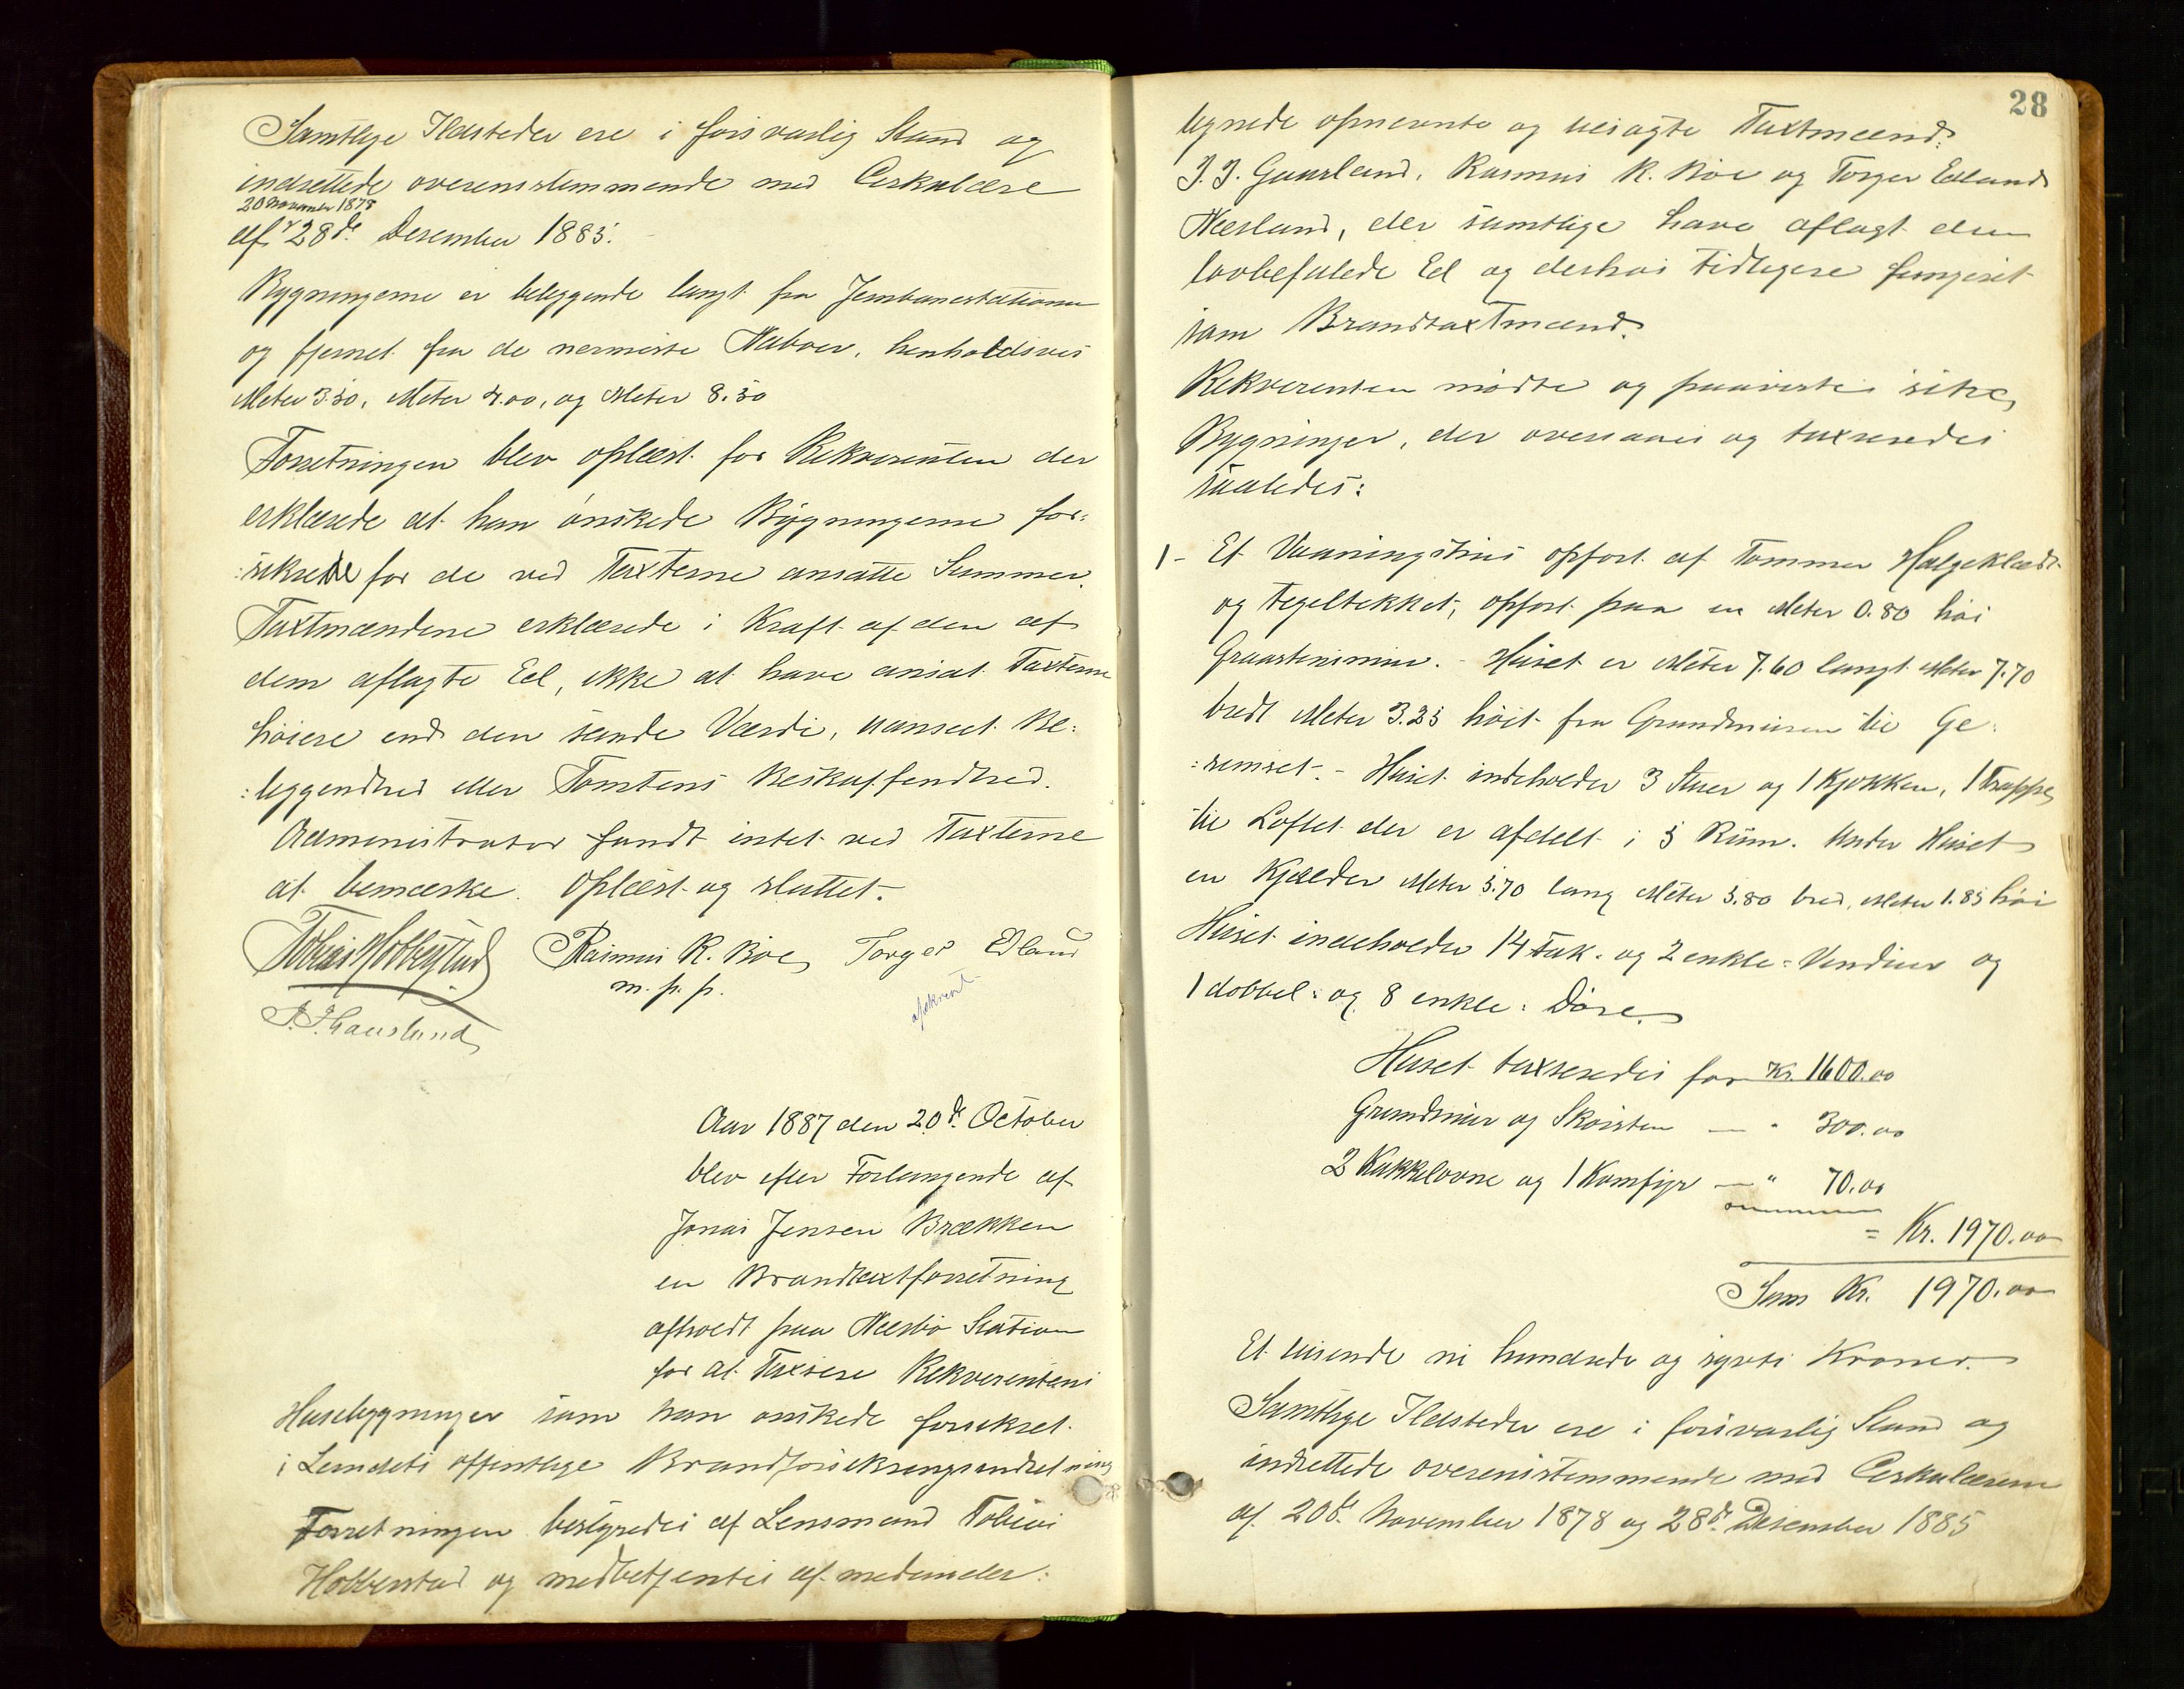 Samtlige Ildsteder ere i forsvarlig Stand og
indrettede overensstemmende med Cirkulære
20 November 1878
af 28de Desember 1885.
Bygningerne er beliggende langt fra Jernbanestationen
og fjernet fra de nermeste Naboer, henholdsvis
Meter 3.50, Meter 4.00, og Meter 8.50
Forretningen blev oplæst for Rekvirenten der
erklærede at han ønskede Bygningerne for:
:sikrede for de ved Taxterne ansatte Summer.
Taxtmændene erklærede i Kraft af den af
dem aflagte Ed, ikke at have ansat Taxterne
høiere end den sande Værdi, uanseet Be:
:liggendhed eller Tomtens Beskaffendhed.
Administrator fandt intet ved Taxterne
at bemærke. Oplæst og sluttet.
Tobias Hobberstad Rasmus R. Böe Torger Edland
m. p. p.
afskrevet
J. J. Gausland
Aar 1887 den 20de October
blev efter Forlangende af
Jonas Jensen Brækken
en Brandtaxtforretning
afholdt paa Nærbø Station
for at Taxere Rekvirentens
Husebygninger som han ønskede forsikret
i Landets offentlige Brandforsikringsindretning
Forretningen bestyredes af Lensmand Tobias
Hobberstad og medbetjentes af medunder:
28
tegnede opnevnte og Taxtmænd:
J. J. Gausland, Rasmus R. Böe og Torger Edland
Nærland, der samtlige have aflagt den
lovbefalede Ed og derhos tidligere fungeret
som Brandtaxtmænd.
Rekvirenten mødte og paaviste sine
Bygninger, der oversaaes og taxeredes
saaledes:
1- Et Vaaningshus opført af Tømmer Halgeklædt
og tegeltekket, opført paa en Meter 0.80 høi
Graastensmur. - Huset er Meter 7.60 langt Meter 7.70
bredt Meter 3.25 høit fra Grundmuren til Ge:
:semset. - Huset indeholder 3 Stuer og 1 Kjøkken, 1 Trappe
til Loftet der er afdelt i 5 Rum. Under Huset
en Kjælder Meter 5.70 lang Meter 3.80 bred, Meter 1.85 høi
Huset indeholder 14 Fak. og 2 enkle: Vinduer og
1 dobbel: og 8 enkle: Døre.
Huset taxeredes for Kr. 1600.00
Grundmur og Skorsten — " 300.00
2 Kakkelovne og 1 Komfyr — " 70.00
= Kr. 1970.00
Sum Kr. 1970.00
Et tusende ni hundrede og sytti Kroner.
Samtlige Ildsteder ere i forsvarlig Stand og
indrettede overensstemmende med Cirkulærerne
af 20de November 1878 og 28de Desember 1885